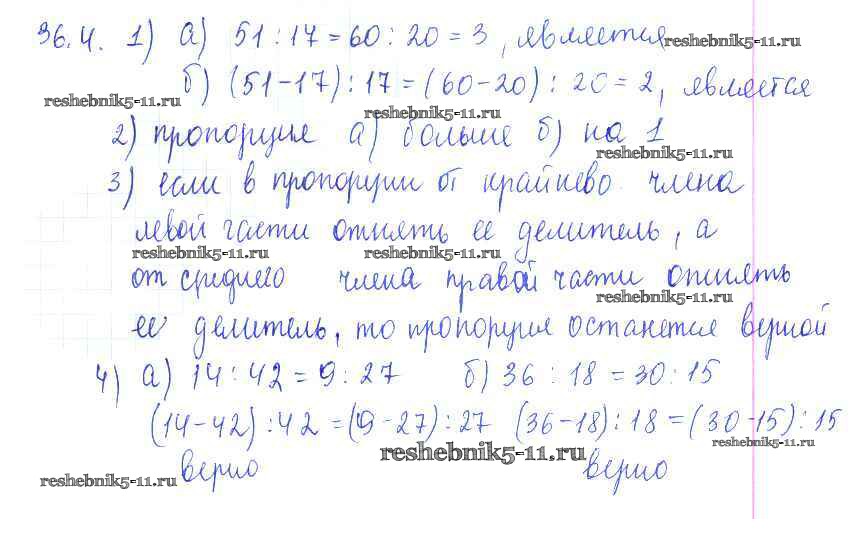 36.4. 1) а) 51 : 17 = 60 : 20 = 3, является
reshebnik5-11.ru
б) (51-17) : 17 = (60-20) : 20 = 2, является
reshebnik5-11.ru
reshebnik5-11.ru
2) пропорция а) больше б) на 1
reshebnik5-11.ru
3) если в пропорции от крайнево члена
левой части отнять ее делитель, а
reshebnik5-11.ru
reshebnik5-11.ru
от среднего члена правой части отнять
reshebnik5-11.ru
ее делитель, то пропорция останется верной
4) а) 14 : 42 = 9 : 27 б) 36 : 18 = 30 : 15
(14-42) : 42 = (9-27) : 27 (36-18) : 18 = (30-15) : 15
reshebnik5-11.ru
верно reshebnik5-11.ru верно
reshebnik5-11.ru